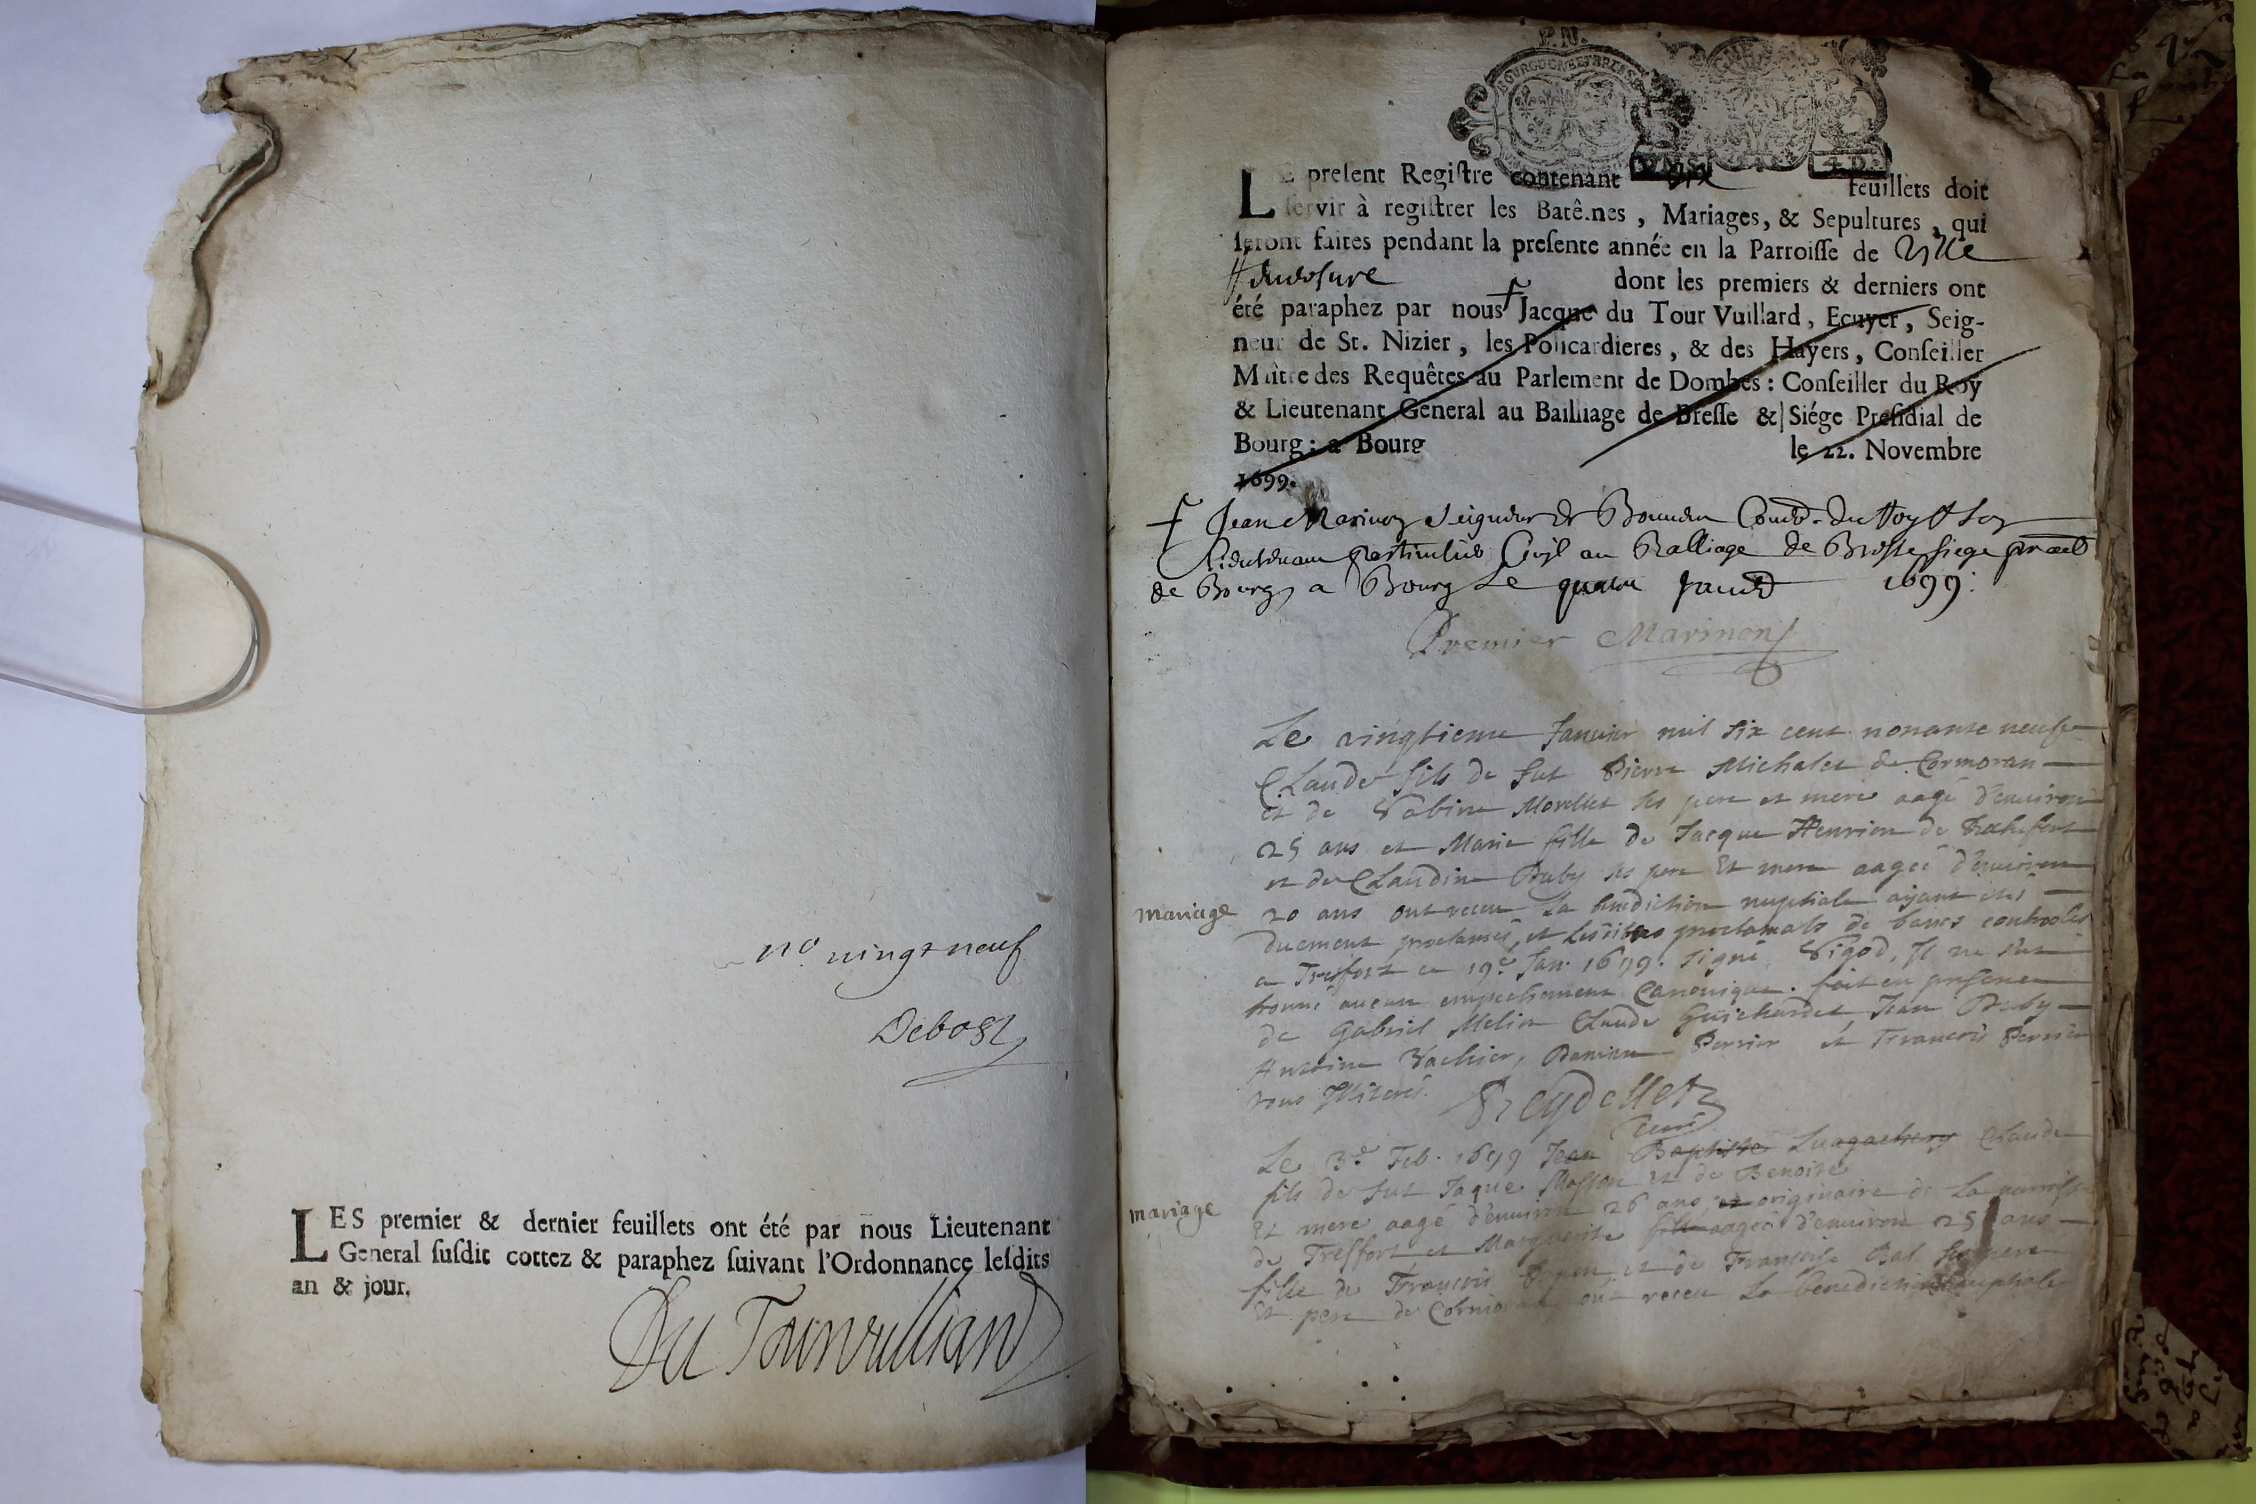 no. vingt neuf
Debost
LES premier & dernier feuillets ont été par nous Lieutenant
General ſuſdit cottez & paraphez ſuivant l'Ordonnance leſdits
an & jour.
Du Tourvulliard
P. N.
BOURGOGNE ET BRESSE
4. D.
LE preſent Regiſtre contenant dix feuillets doit
ſervir à regiſtrer les Batêmes, Mariages, & Sepultures, qui
ſeront faites pendant la preſente année en la Parroiſſe de Ville
dont les premiers & derniers ont
été paraphez par nous Jacque du Tour Vuillard, Ecuyer, Seig-
neur de St. Nizier, les Policardieres, & des Hayers, Conſeiller
Maître des Requêtes au Parlement de Dombes: Conſeiller du Roy
& Lieutenant General au Bailliage de Breſſe & Siége Preſidial de
Bourg: a Bourg le 22. Novembre
1699.
Jean Marinon Seigneur de
Lieutenant particulier Civil au Balliage de Bresse siege
de Bourg a Bourg Le 1699.
Premier Marinon
Le vingtieme Janvier mil six cent nonante neuf
Claude fils de fut Pierre Michalet de Cormoran
et de Sabine Morellet ses pere et mere aagé d'environ
25 ans et Marie fille de Jacque Henrion de Rochefort
et de Claudine Buby ses pere Et mere aagée d'environ
mariage
20 ans ont receu La benediction nuptiale ayant etés
duement proclamés, et Lesdites proclamats de bancs controolés
a Treffort ce 19e Jan. 1699. signé Vigod, Il ne s'est
trouvé aucun empechement Canonique. fait en presence
de Gabriel Melion Claude Guichardet, Jean Buby
Antoine Vachier, Perrier et François Perrier
tous Illiterés. Greydellet
curé
Le 3e Feb. 1699 Jean Baptiste Claude
fils de fut Jaque Masson et de Benoite
mariage
Et mere aagé d'environ 26 ans, et originaire de La parroisse
de Treffort et Marguerite fille aagée d'environ 25 ans
fille de François et de Françoise Bal ses mere
Et pere de Cormoran ont receu La benediction nuptiale